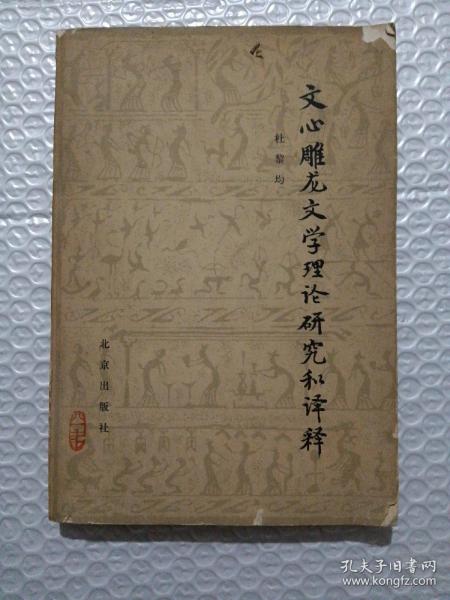 文心雕龙文学理论研究和译释
杜黎均
北京出版社
孔夫子旧书网
www.kongfz.com